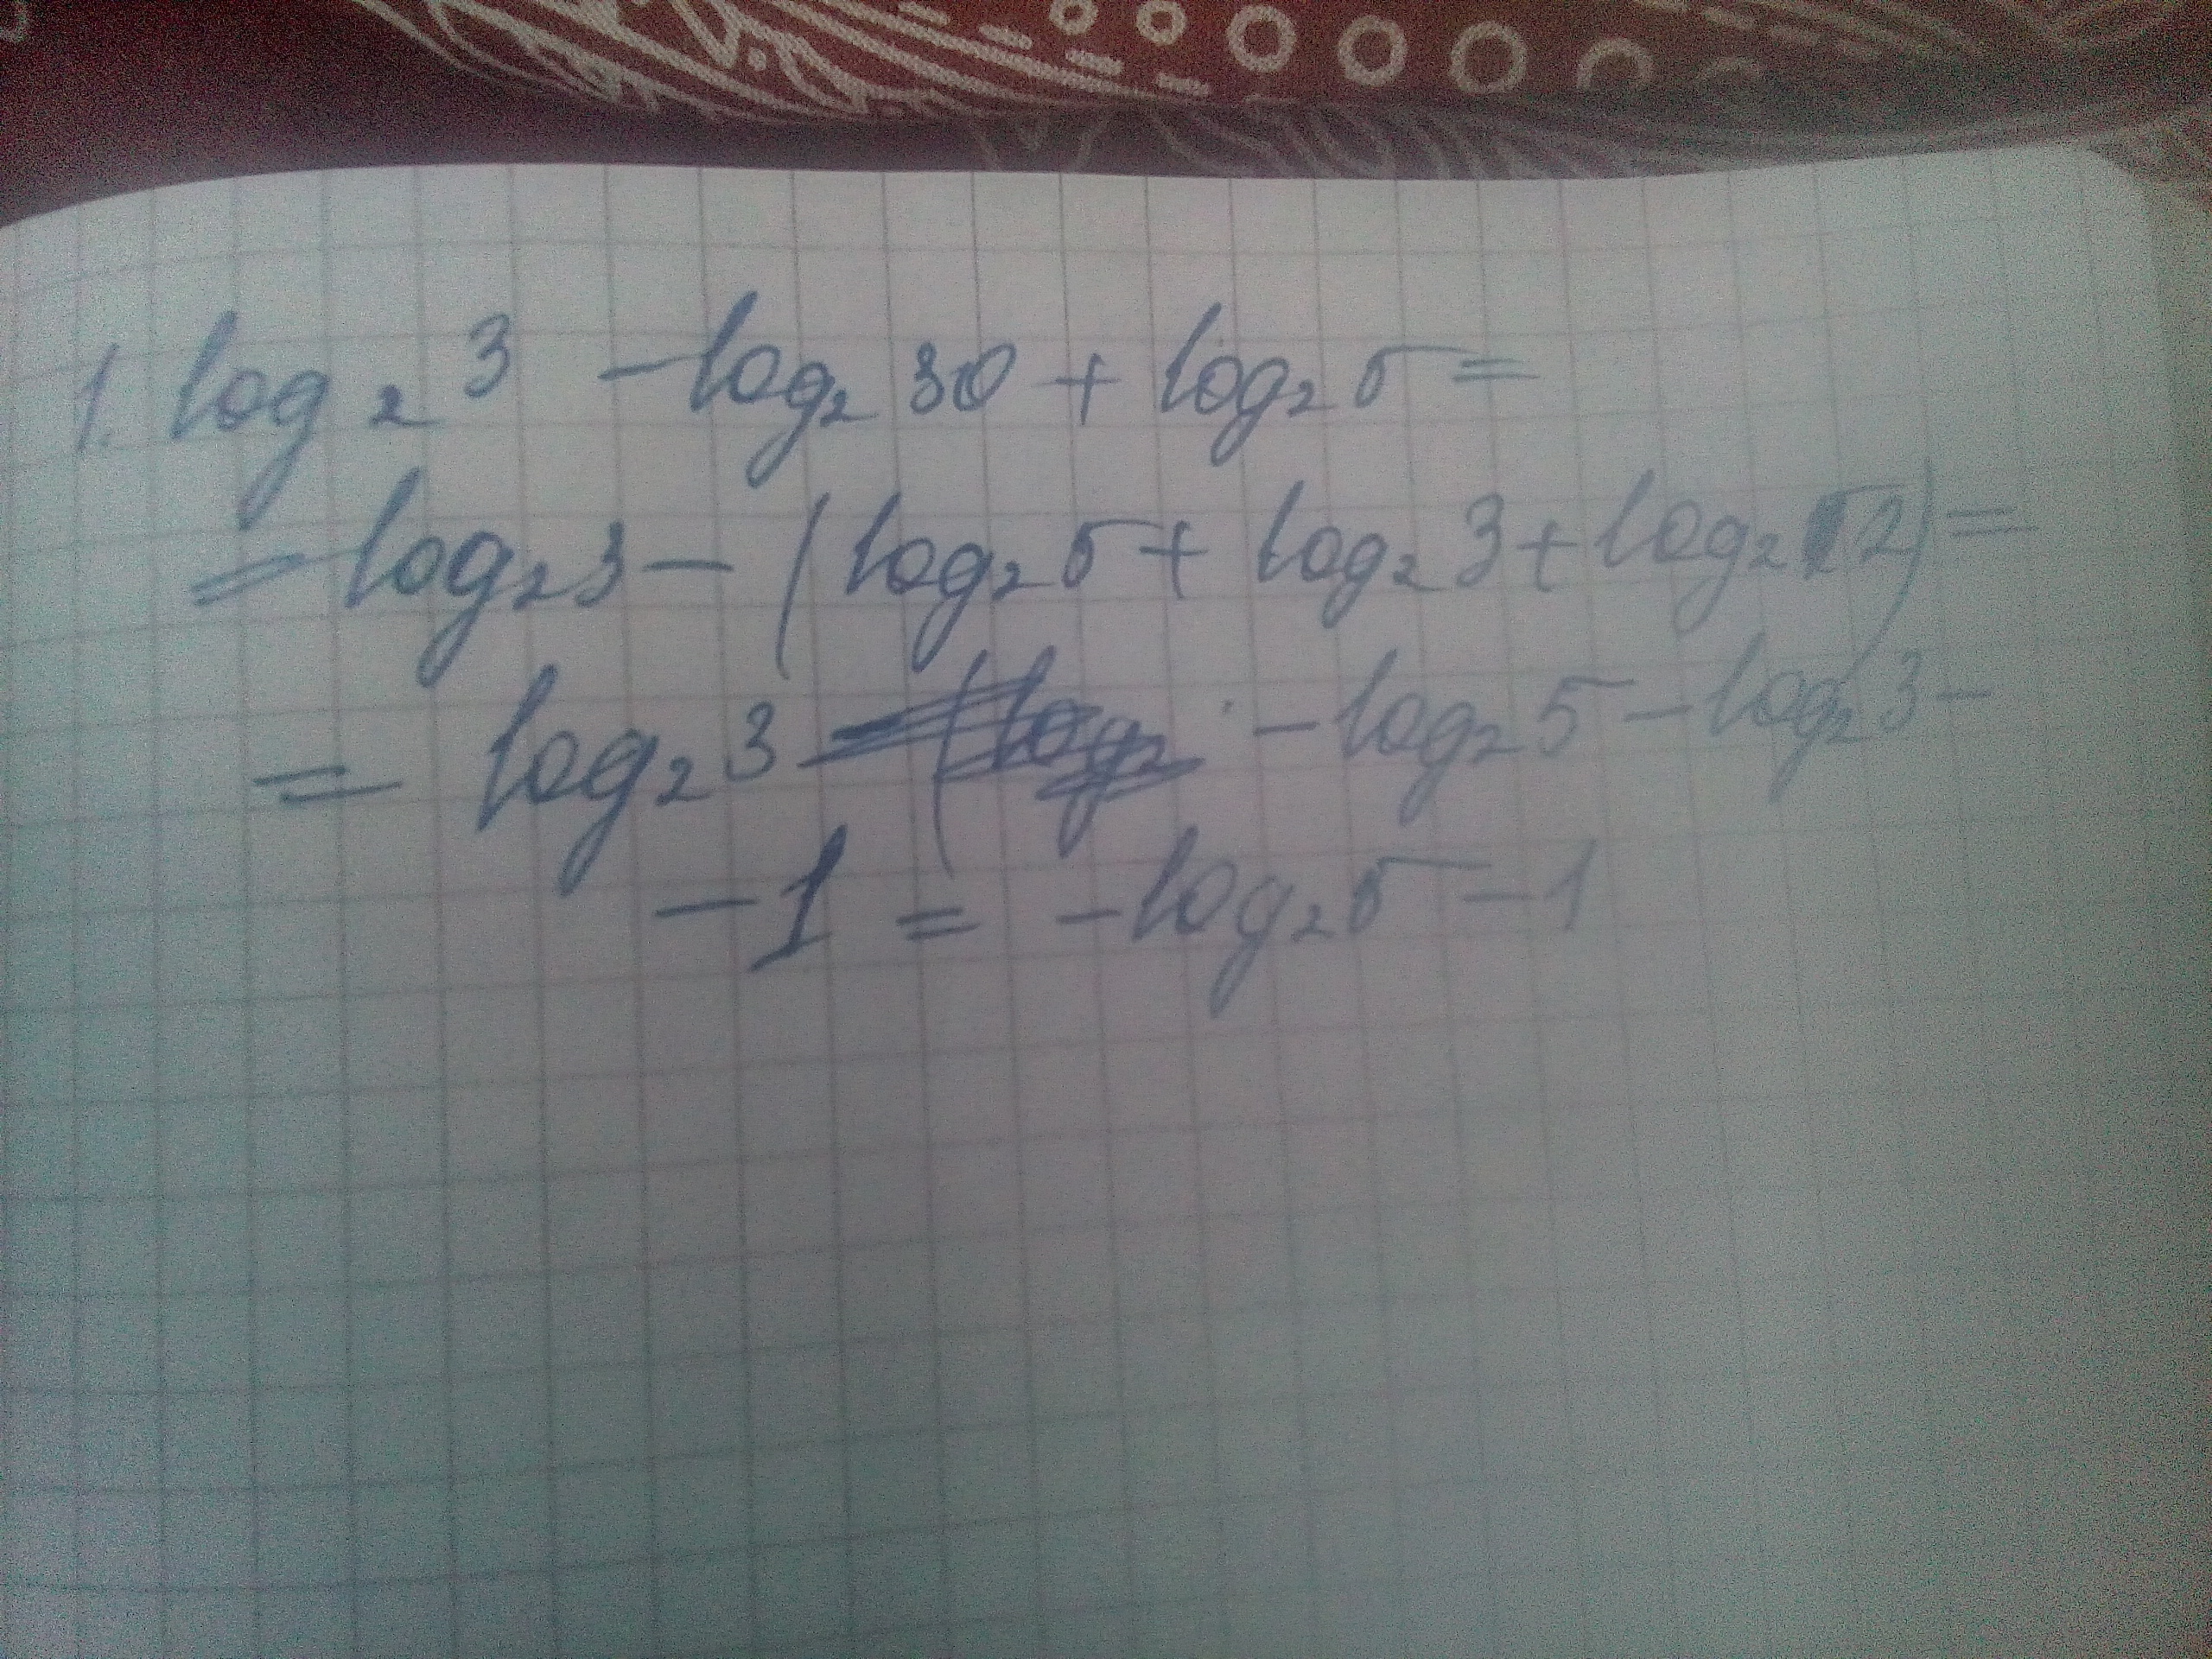 1. log₂ 3 - log₂ 30 + log₂ 5 =
= log₂ 3 - (log₂ 5 + log₂ 3 + log₂ 2) =
= log₂ 3 - log₂ 5 - log₂ 3 -
- 1 = - log₂ 5 - 1